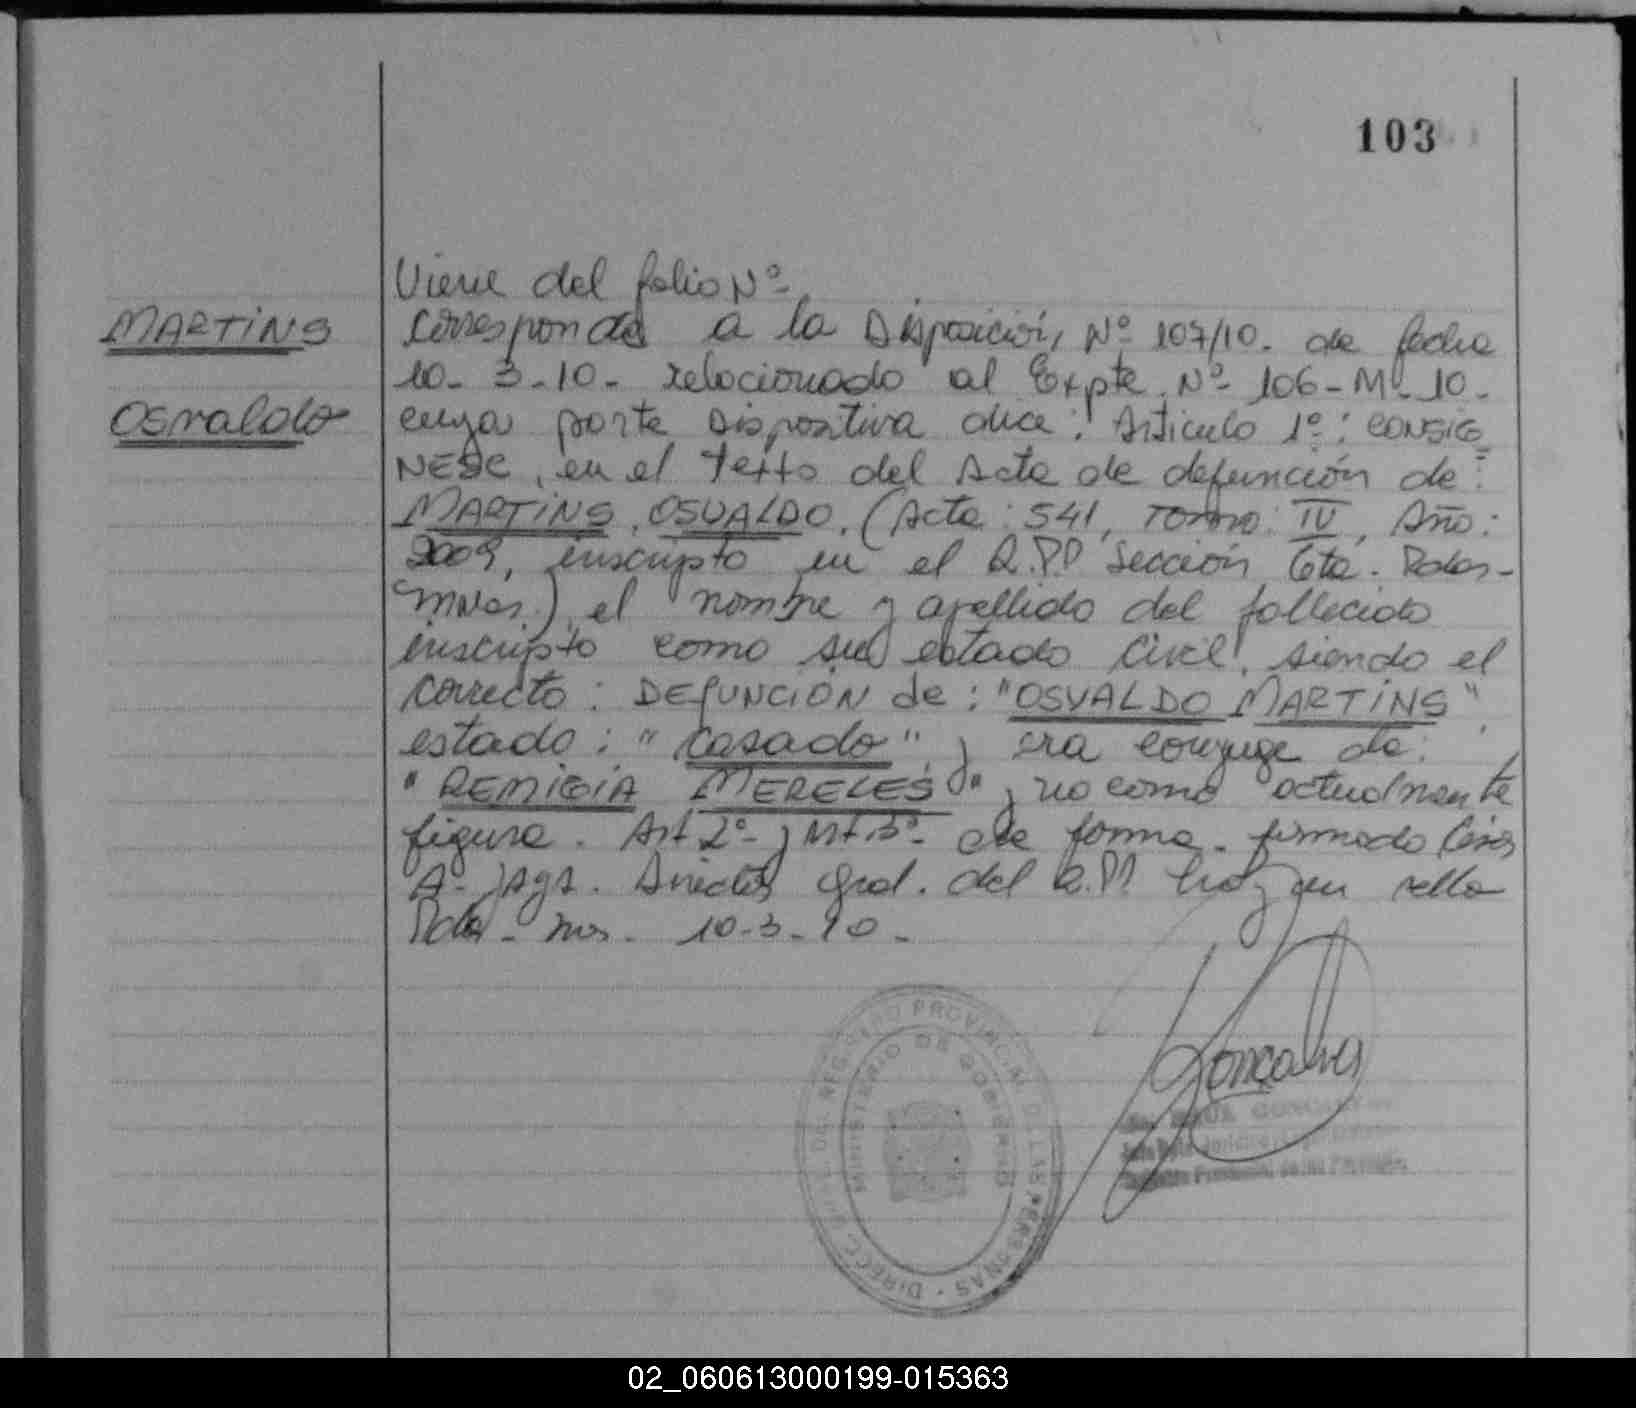 103
Viene del folio Nº-
MARTINS
Corresponde a la Disposición, Nº 107/10. de fecha
10-3-10- relacionado al Expte. Nº- 106-M-10.
Osvaldo
cuya parte Dispositiva dice: Articulo 1º: CONSIG
NESE, en el Texto del Acta de defunción de:
MARTINS, OSVALDO. (Acta: 541, Tomo: IV, Año:
2009, inscripto en el R.P.P Sección 6ta. Pdas-
Mnes.) el nombre y apellido del fallecido
inscripto como su estado Civil, siendo el
correcto: DEFUNCIÓN de: "OSVALDO MARTINS"
estado: "casado", y era conyuge de:
"REMIGIA MERELES" y no como actualmente
figura. Art 2º- y Art.3º- de forma. firmado
A. Director Gral. del R.P.P. hay un sello
Pdas- Mns. 10-3-10-
Goncalves
DIRECC. GRAL. DEL REGISTRO PROVINCIAL DE LAS PERSONAS
MINISTERIO DE GOBIERNO
02_060613000199-015363